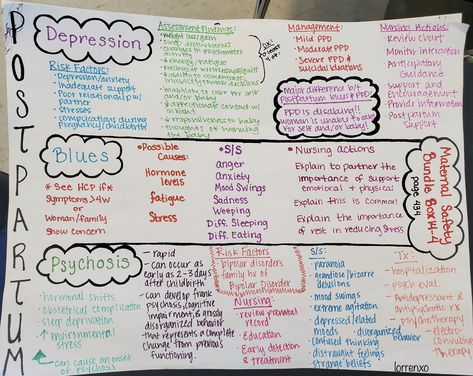 POSTPARTUM
Depression
Risk Factors:
· Depression/anxiety
· Inadequate support
· Poor relationship w/
partner
· stresses
· complications during
pregnancy/childbirth
Assessment Findings:
· weight loss/gain
· sleep disturbances
· changes in psychomotor
activity
· ↓ energy/fatigue
· feelings of worthlessness/guilt
· inability to care for self
and/or baby
· responsiveness to baby
· thoughts of harming
Management:
· Mild PPD
· Moderate PPD
· Severe PPD &
suicidal ideations
Major difference b/t
Postpartum blues & PPD:
PPD is disabling!!
woman is unable to care
for self and/or baby!
Nursing Actions:
Review chart
Monitor interaction
Anticipatory
Guidance
Support and
Encouragement
Provide information
Postpartum
support
Blues
* See HCP if *
Symptoms >4w
or
Woman/family
show concern
• Possible
Causes:
Hormone
levels
fatigue
Stress
• S/S
anger
Anxiety
Mood Swings
Sadness
Weeping
Diff. Sleeping
Diff. Eating
• Nursing actions
Explain to partner the
importance of support
emotional + physical
Explain this is common
Explain the importance
of rest in reducing stress
Maternal Safety
Bundle Box 14-4
page 434
Psychosis
· hormonal shifts
· obstetrical complication
· sleep deprivation
· ↑ environmental
stress
* can cause an onset
of psychosis
- rapid
- can occur as
early as 2-3 days
after childbirth
- can develop frank
psychosis, cognitive
impairment, & grossly
disorganized behavior
that represents a complete
change from previous
functioning.
Risk Factors
· bipolar disorders
· family hx of
Bipolar Disorder
Nursing:
· review prenatal
record
· Education
· Early detection
& treatment
S/S:
· paranoia
· grandiose/bizarre
delusions
· mood swings
· extreme agitation
· depressed/elated
moods
· disorganized behavior
· confused thinking
· distraught feelings
· strange beliefs
Tx:
· hospitalization
· psych eval.
· Antidepressant &
antipsychotic rx
· psychotherapy
· Electro-
convulsive
Therapy
lorrenxo